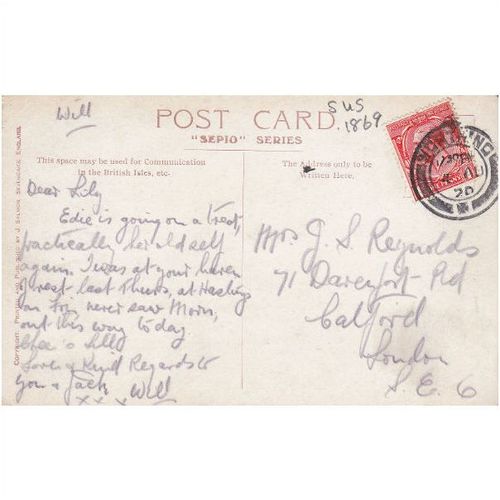 Will
POST CARD.
"SEPIO" SERIES
S US
1869
This space may be used for Communication
in the British Isles, etc.
The Address only to be
Written Here.
COPYRIGHT. PRINTED AND PUBLISHED BY J. SALMON SEVENOAKS, ENGLAND.
Dear Lily
Edie is going on a treat,
practically her old self
again. I was at your haven
of rest last Thurs, at Hastings
on Fri, never saw Mom,
out this way today.
Love & Kind Regards to
you & Jack Will
x x x
Mrs J. S. Reynolds
71 Davenport Rd
Catford
London
S. E. 6